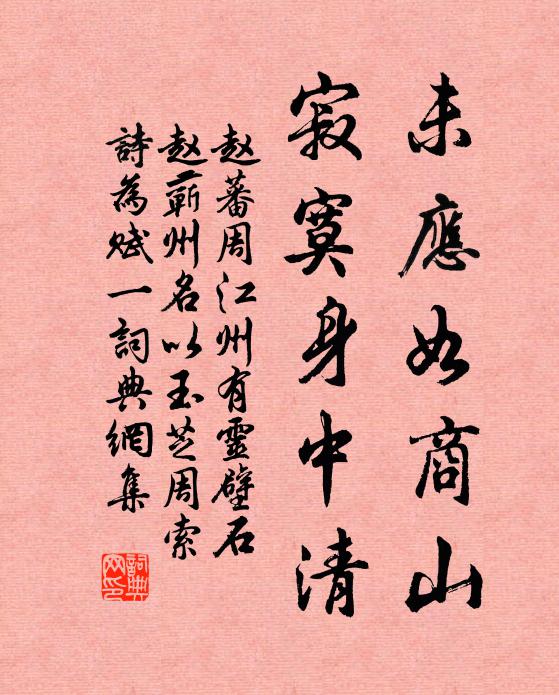 未應如商山
寂寞身中清
赵蕃周江州有靈壁石
赵蘄州名以玉芝周索
詩為赋一詞典網集
詞典网印